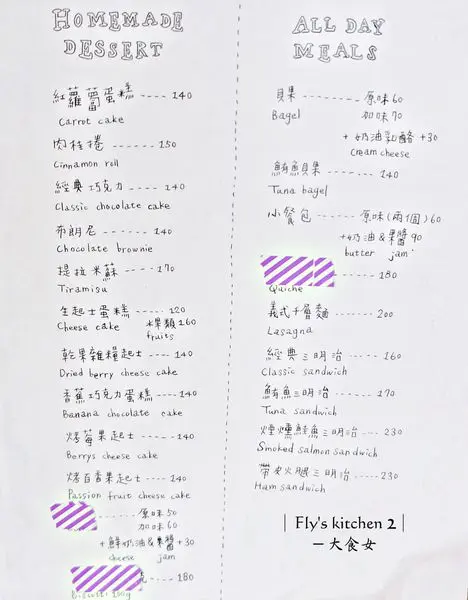 HOMEMADE
DESSERT
紅蘿蔔蛋糕 ---- 140
Carrot cake
肉桂捲 ----- 150
Cinnamon roll
經典巧克力 ---- 140
Classic chocolate cake
布朗尼 ----- 140
Chocolate brownie
提拉米蘇 ---- 170
Tiramisu
生起士蛋糕 ---- 120
Cheese cake 水果類 160
fruits
乾果雜糧起士 --- 140
Dried berry cheese cake
香蕉巧克力蛋糕 ---- 140
Banana chocolate cake
烤莓果起士 ------ 140
Berrys cheese cake
烤百香果起士 ---- 140
Passion fruit cheese cake
------ 原味 50
加味 60
+ 鮮奶油 & 果醬 + 30
cheese jam
-- 180
Biscotti
ALL DAY
MEALS
貝果 -------- 原味 60
Bagel 加味 70
+ 奶油乳酪 +30
Cream cheese
鮪魚貝果 ------ 140
Tuna bagel
小餐包 ----- 原味(兩個) 60
+ 奶油 & 果醬 90
butter jam
----- 180
Quiche
義式千層麵 ----- 200
Lasagna
經典三明治 ---- 160
Classic sandwich
鮪魚三明治 ---- 170
Tuna sandwich
煙燻鮭魚三明治 --- 230
Smoked salmon sandwich
帶皮火腿三明治 ---- 230
Ham sandwich
| Fly's kitchen 2 |
一大食女